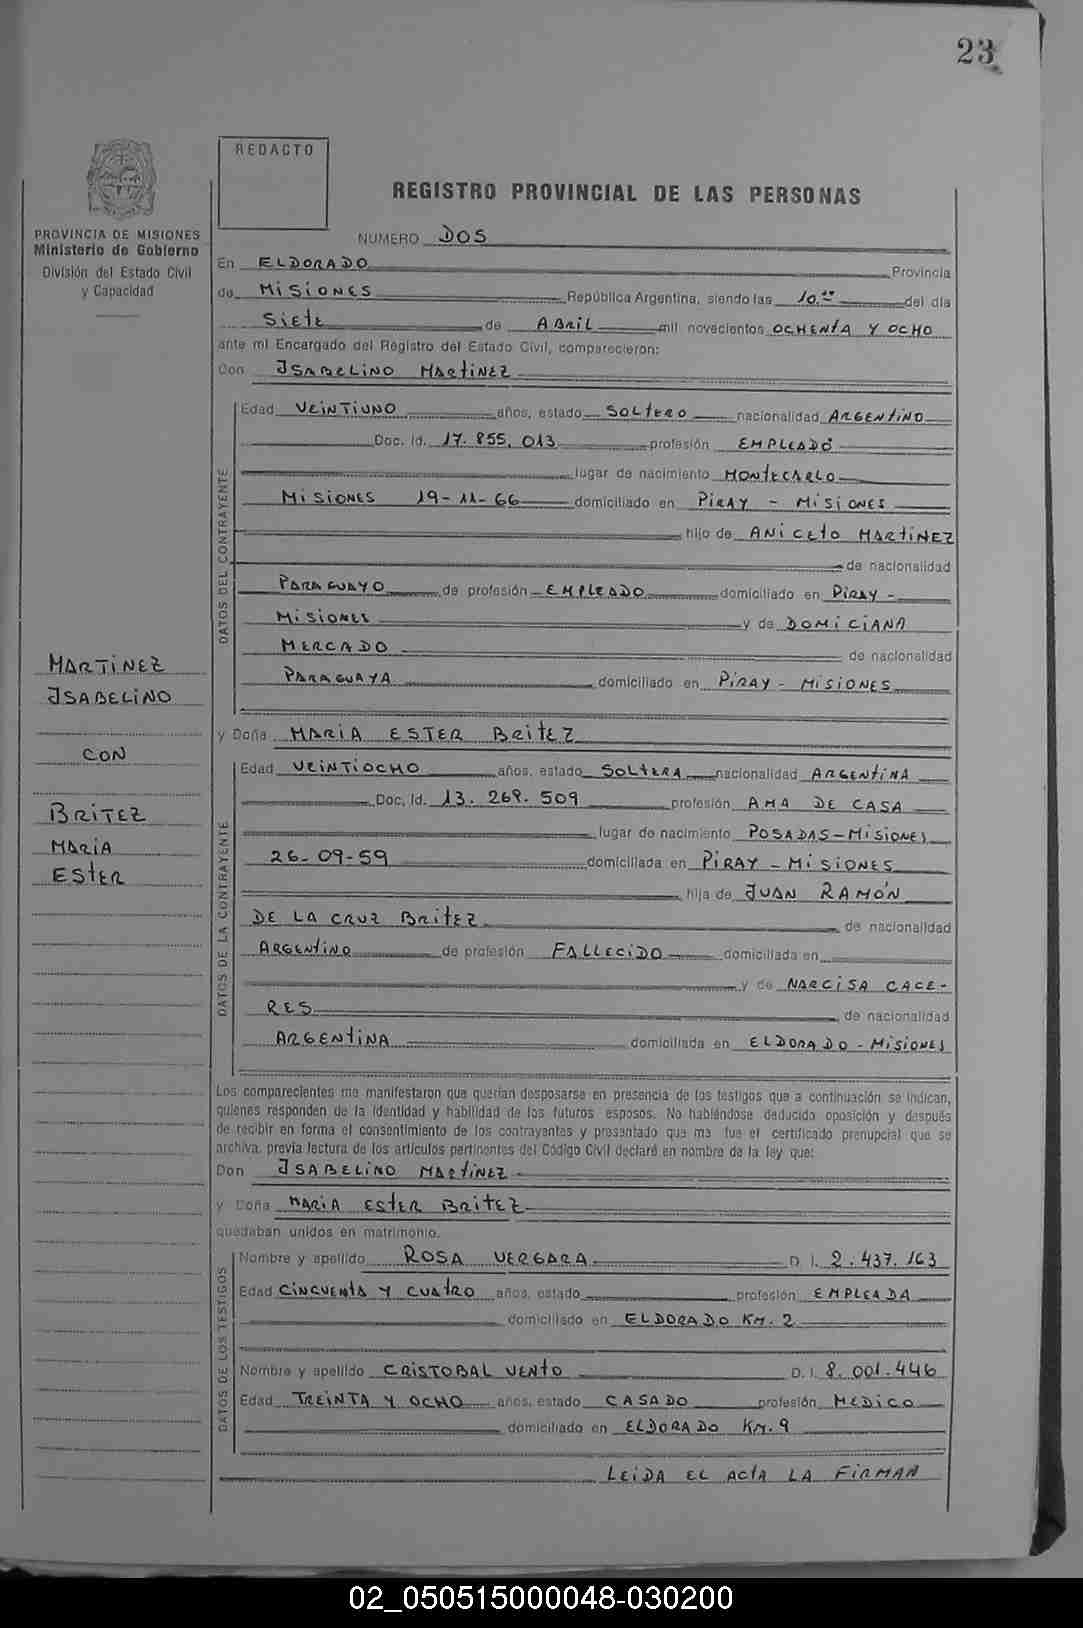 23
REDACTO
REGISTRO PROVINCIAL DE LAS PERSONAS
PROVINCIA DE MISIONES
Ministerio de Gobierno
División del Estado Civil
y Capacidad
NUMERO DOS
En ELDORADO Provincia
de MISIONES República Argentina, siendo las 10.- del día
SIETE de ABRIL mil novecientos OCHENTA Y OCHO
ante mí Encargado del Registro del Estado Civil, comparecieron:
Don ISABELINO MARTINEZ
DATOS DEL CONTRAYENTE
Edad VEINTIUNO años, estado SOLTERO nacionalidad ARGENTINO
Doc. Id. 17.855.013 profesión EMPLEADO
lugar de nacimiento MONTECARLO
MISIONES 19-11-66 domiciliado en PIRAY - MISIONES
hijo de ANICETO MARTINEZ
de nacionalidad
PARAGUAYO de profesión EMPLEADO domiciliado en PIRAY -
MISIONES y de DOMICIANA
MERCADO de nacionalidad
PARAGUAYA domiciliado en PIRAY - MISIONES
MARTINEZ
ISABELINO
CON
BRITEZ
MARIA
ESTER
y Doña MARIA ESTER BRITEZ
DATOS DE LA CONTRAYENTE
Edad VEINTIOCHO años, estado SOLTERA nacionalidad ARGENTINA
Doc. Id. 13.269.509 profesión AMA DE CASA
lugar de nacimiento POSADAS-MISIONES
26-09-59 domiciliada en PIRAY - MISIONES
hija de JUAN RAMÓN
DE LA CRUZ BRITEZ de nacionalidad
ARGENTINO de profesión FALLECIDO domiciliada en
y de NARCISA CACE-
RES de nacionalidad
ARGENTINA domiciliada en ELDORADO - MISIONES
Los comparecientes me manifestaron que querían desposarse en presencia de los testigos que a continuación se indican,
quienes responden de la identidad y habilidad de los futuros esposos. No habiéndose deducido oposición y después
de recibir en forma el consentimiento de los contrayentes y presentado que me fue el certificado prenupcial que se
archiva, previa lectura de los artículos pertinentes del Código Civil declaré en nombre de la ley que:
Don ISABELINO MARTINEZ
y Doña MARIA ESTER BRITEZ
quedaban unidos en matrimonio.
DATOS DE LOS TESTIGOS
Nombre y apellido ROSA VERGARA D. I. 2.437.163
Edad CINCUENTA Y CUATRO años, estado profesión EMPLEADA
domiciliado en ELDORADO KM. 2
Nombre y apellido CRISTOBAL VENTO D. I. 8.001.446
Edad TREINTA Y OCHO años, estado CASADO profesión MEDICO
domiciliado en ELDORADO KM. 9
LEIDA EL ACTA LA FIRMAN
02_050515000048-030200